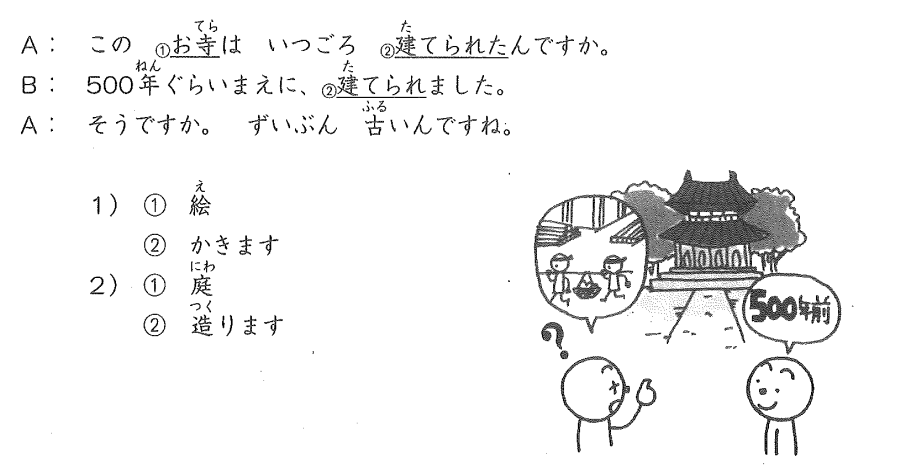 A： この ①お寺は いつごろ ②建てられたんですか。
B： 500年ぐらいまえに、②建てられました。
A： そうですか。 ずいぶん 古いんですね。
1） ① 絵
② かきます
2） ① 庭
② 造ります
500年前
?